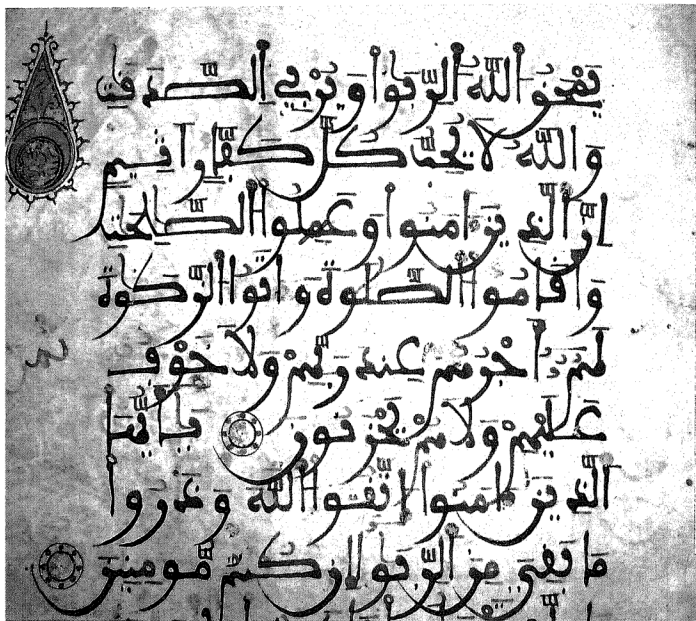 يَمْحَقُ اللَّهُ الرِّبَوا وَيُرْبِي الصَّدَقَتِ
وَاللَّهُ لَا يُحِبُّ كُلَّ كَفَّارٍ اَثِيمٍ
اِنَّ الَّذِينَ ءَامَنُوا وَعَمِلُوا الصَّلِحَتِ
وَأَقَامُوا الصَّلَوةَ وَءَاتَوُا الزَّكَوةَ
لَهُمُ أَجْرُهُمْ عِندَ رَبِّهِمْ وَلَا خَوْفٌ
عَلَيْهِمْ وَلَا هُمْ يَحْزَنُونَ يَأَيُّهَا
الَّذِينَ ءَامَنُوا اتَّقُوا اللَّهَ وَذَرُوا
مَا بَقِيَ مِنَ الرِّبَوا إِن كُنتُم مُّومِنِينَ